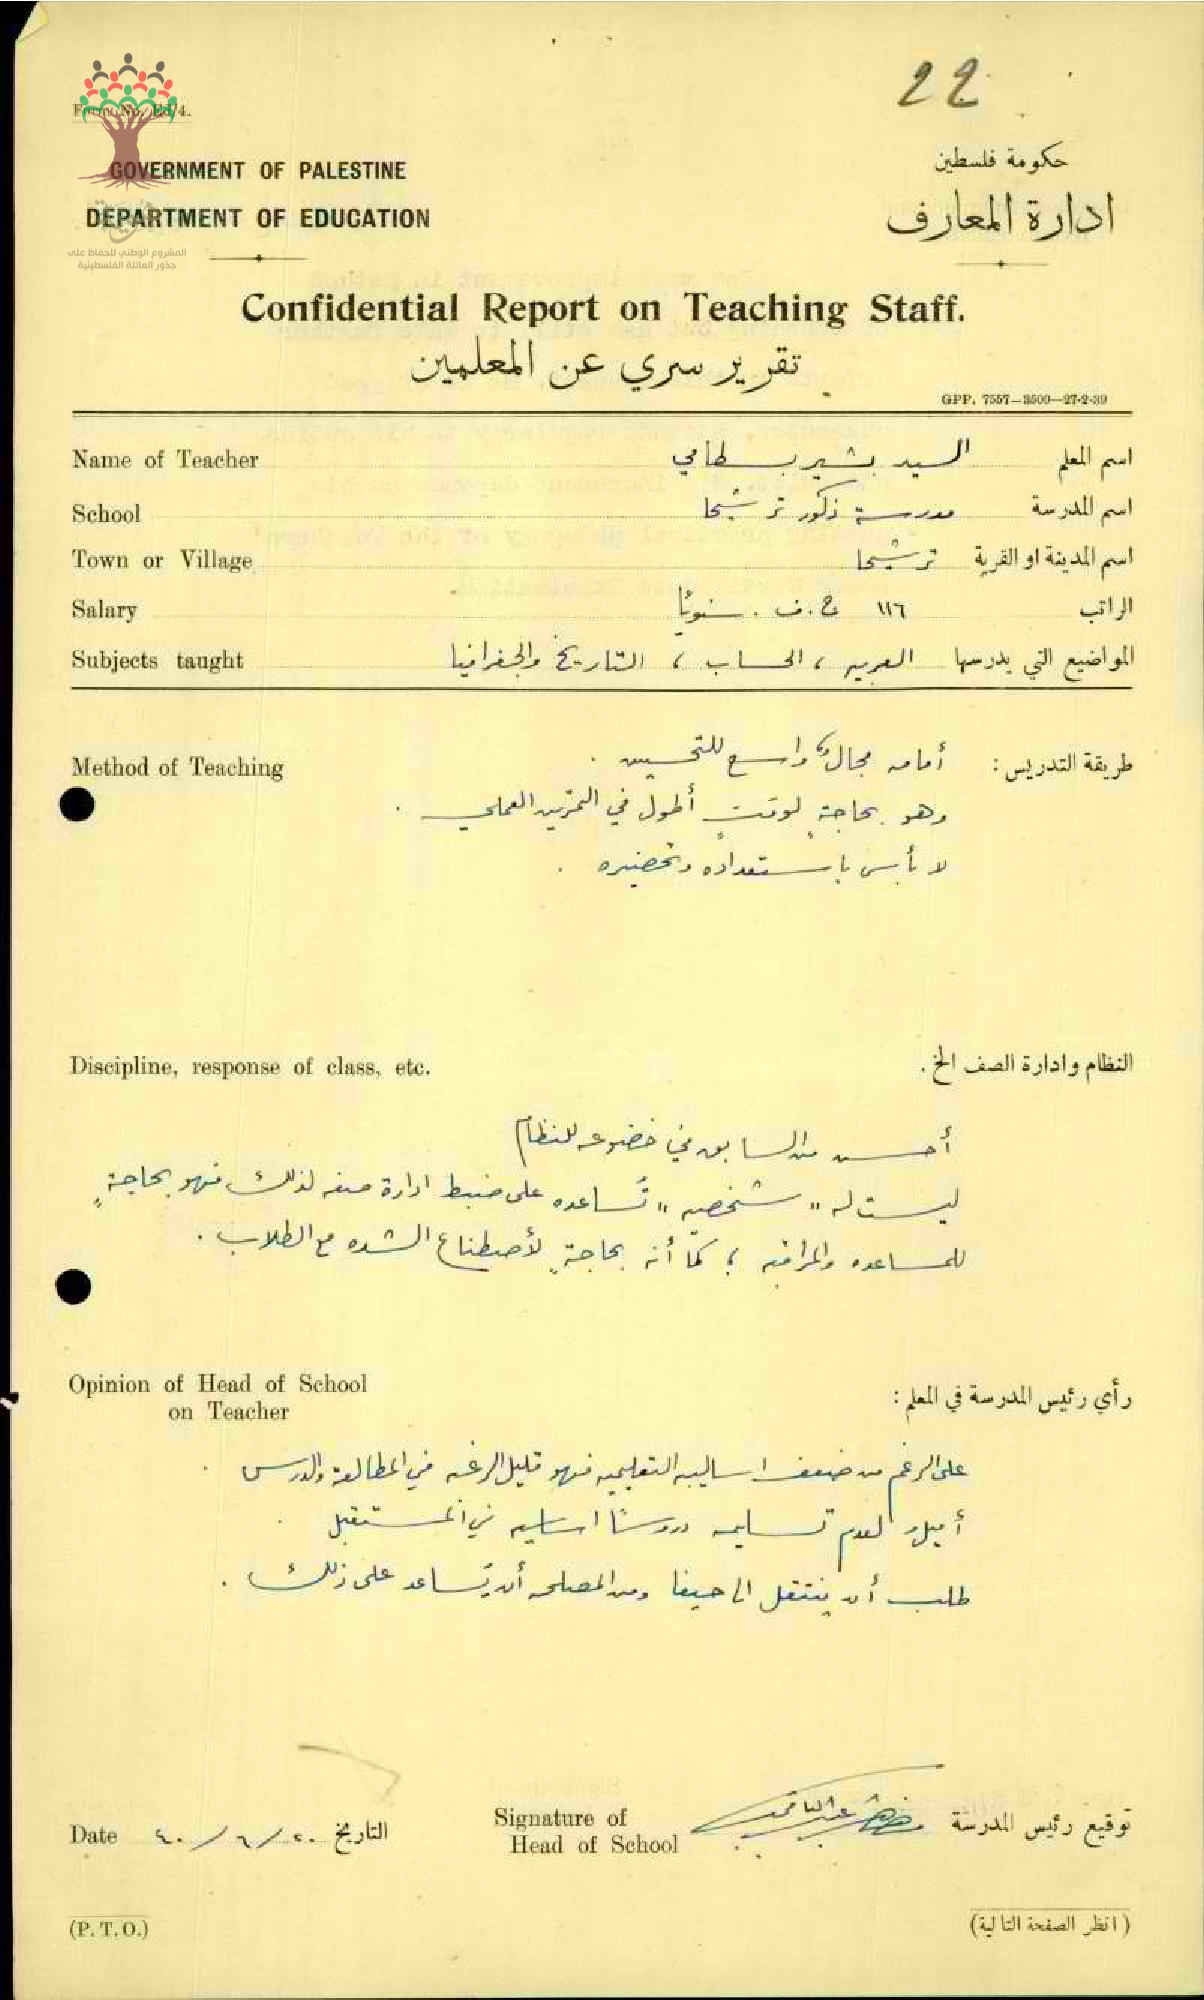 22
Form No. Ed/4.
GOVERNMENT OF PALESTINE
حكومة فلسطين
DEPARTMENT OF EDUCATION
ادارة المعارف
المشروع الوطني للحفاظ على
جذور العائلة الفلسطينية
Confidential Report on Teaching Staff.
تقرير سري عن المعلمين
GPP. 7557—3500—27-2-39
Name of Teacher السيد بشير بسطامي اسم المعلم
School مدرسة ذكور ترشيحا اسم المدرسة
Town or Village ترشيحا اسم المدينة او القرية
Salary ١١٦ ج.ف. سنويًا الراتب
Subjects taught العربيه ، الحساب ، التاريخ والجغرافيا المواضيع التي يدرسها
Method of Teaching طريقة التدريس :
أمامه مجال واسع للتحسين .
وهو بحاجةٍ لوقتٍ أطول في التمرين العملي .
لا بأس باستعداده وتحضيره .
Discipline, response of class, etc. النظام وادارة الصف الخ .
أحسن من السابق في خضوعه للنظام
ليست له " شخصيه " تُساعده على ضبط ادارة صفه لذلك فهو بحاجةٍ
للمساعده والمراقبه ، كما أنه بحاجةٍ لأصطناع الشده مع الطلاب .
Opinion of Head of School
on Teacher
رأي رئيس المدرسة في المعلم :
على الرغم من ضعف اساليبه التعليميه فهو قليل الرغبه في المطالعة والدرس .
أميل لعدم تسليمه دروسًا اساسيه في المستقبل .
طلب أن ينتقل الى حيفا ومن المصلحه أن يُساعد على ذلك .
Signature of
Head of School
توقيع رئيس المدرسة
Date ٢٠/٦/٤٠ التاريخ
(P. T. O.)
(انظر الصفحة التالية)